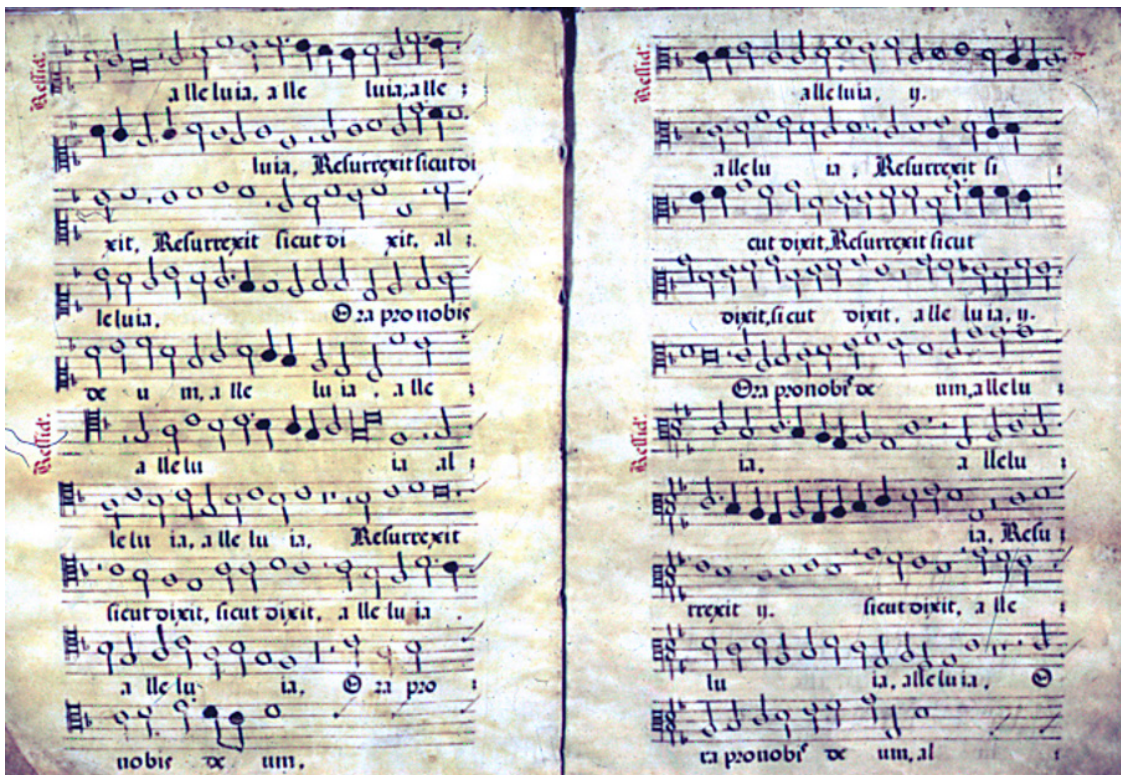 alleluia, alle luia, alle :
luia, Resurrexit sicut di
xit, Resurrexit sicut di xit, al :
leluia, Ora pro nobis
de u m, alle luia, alle :
a llelu ia al :
lelu ia, alle lu ia, Resurrexit
sicut dixit, sicut dixit, alle lu ia
a lle lu ia, Ora pro :
nobis de um,
alleluia, ij.
allelu ia, Resurrexit si :
cut dixit, Resurrexit sicut
dixit, sicut dixit, alle lu ia, ij.
Ora pro nobis de um, allelu :
ia, a llelu :
ia, Resu :
rrexit ij. sicut dixit, alle :
lu ia, alleluia, O
ra pro nobis de um, al :